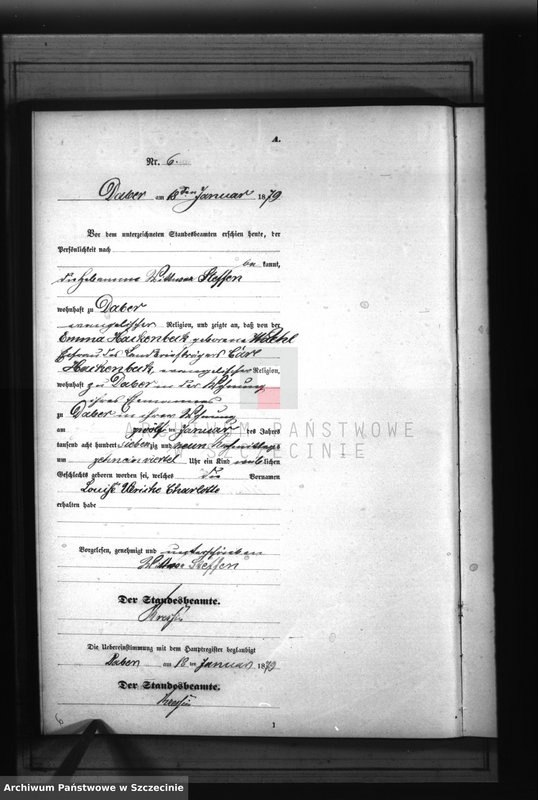 A.
Nr. 6.
Daber am 18ten Januar 1879
Vor dem unterzeichneten Standesbeamten erschien heute, der
Persönlichkeit nach
be kannt,
die Hebamme Wittwe Steffen
wohnhaft zu Daber
evangelischer Religion, und zeigte an, daß von der
Emma Haikenbeck geborene
Ehefrau des Landbriefträgers Carl
Haikenbeck, evangelischer Religion,
wohnhaft zu Daber in der Wohnung
ihres Ehemannes
zu Daber in ihrer Wohnung
am zwölften Januar des Jahres
tausend acht hundert siebenzig und neun Vormittags
um zehn ein viertel Uhr ein Kind weiblichen
Geschlechts geboren worden sei, welches die Vornamen
Louise Ulricke Charlotte
erhalten habe
Vorgelesen, genehmigt und unterschrieben
Wittwe Steffen
Der Standesbeamte.
Die Uebereinstimmung mit dem Hauptregister beglaubigt
Daber am 18ten Januar 1879
Der Standesbeamte.
6
1
ARCHIWUM PAŃSTWOWE
W SZCZECINIE
Archiwum Państwowe w Szczecinie